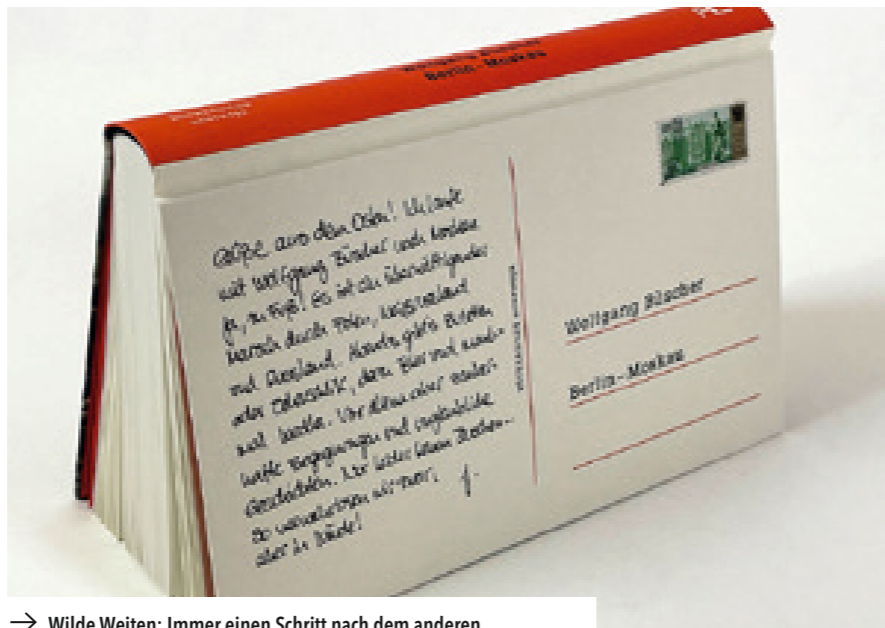 Wolfgang Büscher
Berlin-Moskau
Grüße aus dem Osten! Ich laufe
mit Wolfgang Büscher nach Moskau
ja, zu Fuß! Es ist ein überwältigender
Marsch durch Polen, Weissrussland
und Russland. Abends gibt's
oder, dazu Bier und manch-
mal Wodka. Vor allem aber zauber-
hafte Begegnungen und unglaubliche
Geschichten. Nur leider keinen
So verwahrlosen wir zwar,
aber in Würde!
J.
Wolfgang Büscher
Berlin-Moskau
→ Wilde Weiten: Immer einen Schritt nach dem anderen